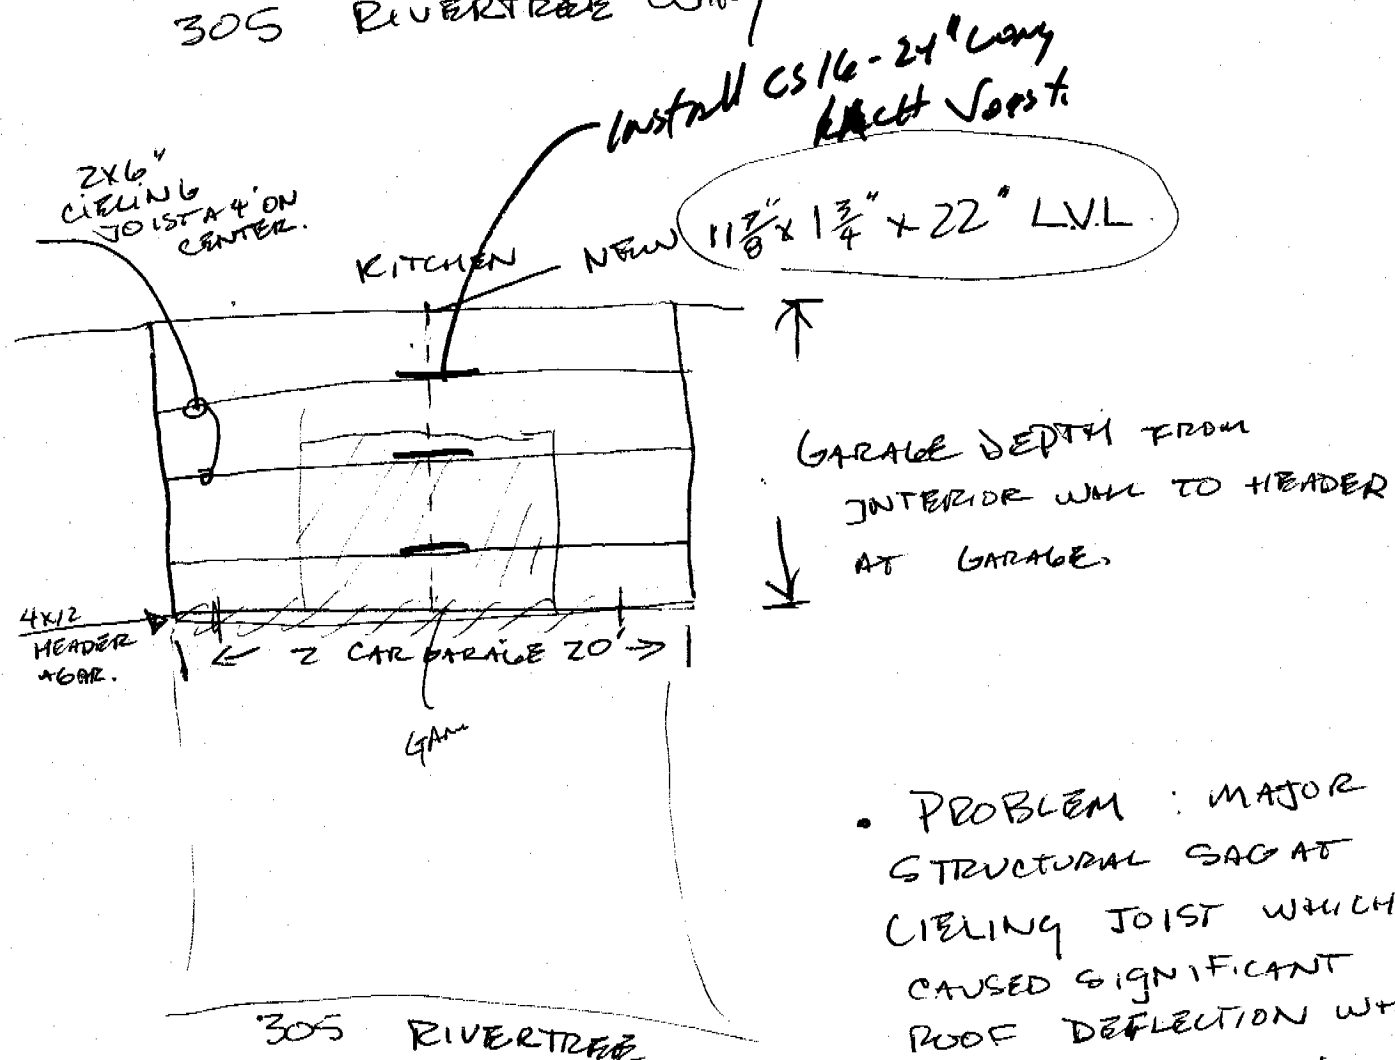 305 RIVERTREE WAY
Install CS16-24" Long
Each Joist.
2X6"
CIELING
JOIST A 4' ON
CENTER.
KITCHEN
NEW 11 7/8" x 1 3/4" x 22" L.V.L
GARAGE DEPTH FROM
INTERIOR WALL TO HEADER
AT GARAGE.
4x12
HEADER
GAR.
2 CAR GARAGE 20'
• PROBLEM : MAJOR
STRUCTURAL SAG AT
CIELING JOIST WHICH
CAUSED SIGNIFICANT
ROOF DEFLECTION
305 RIVERTREE